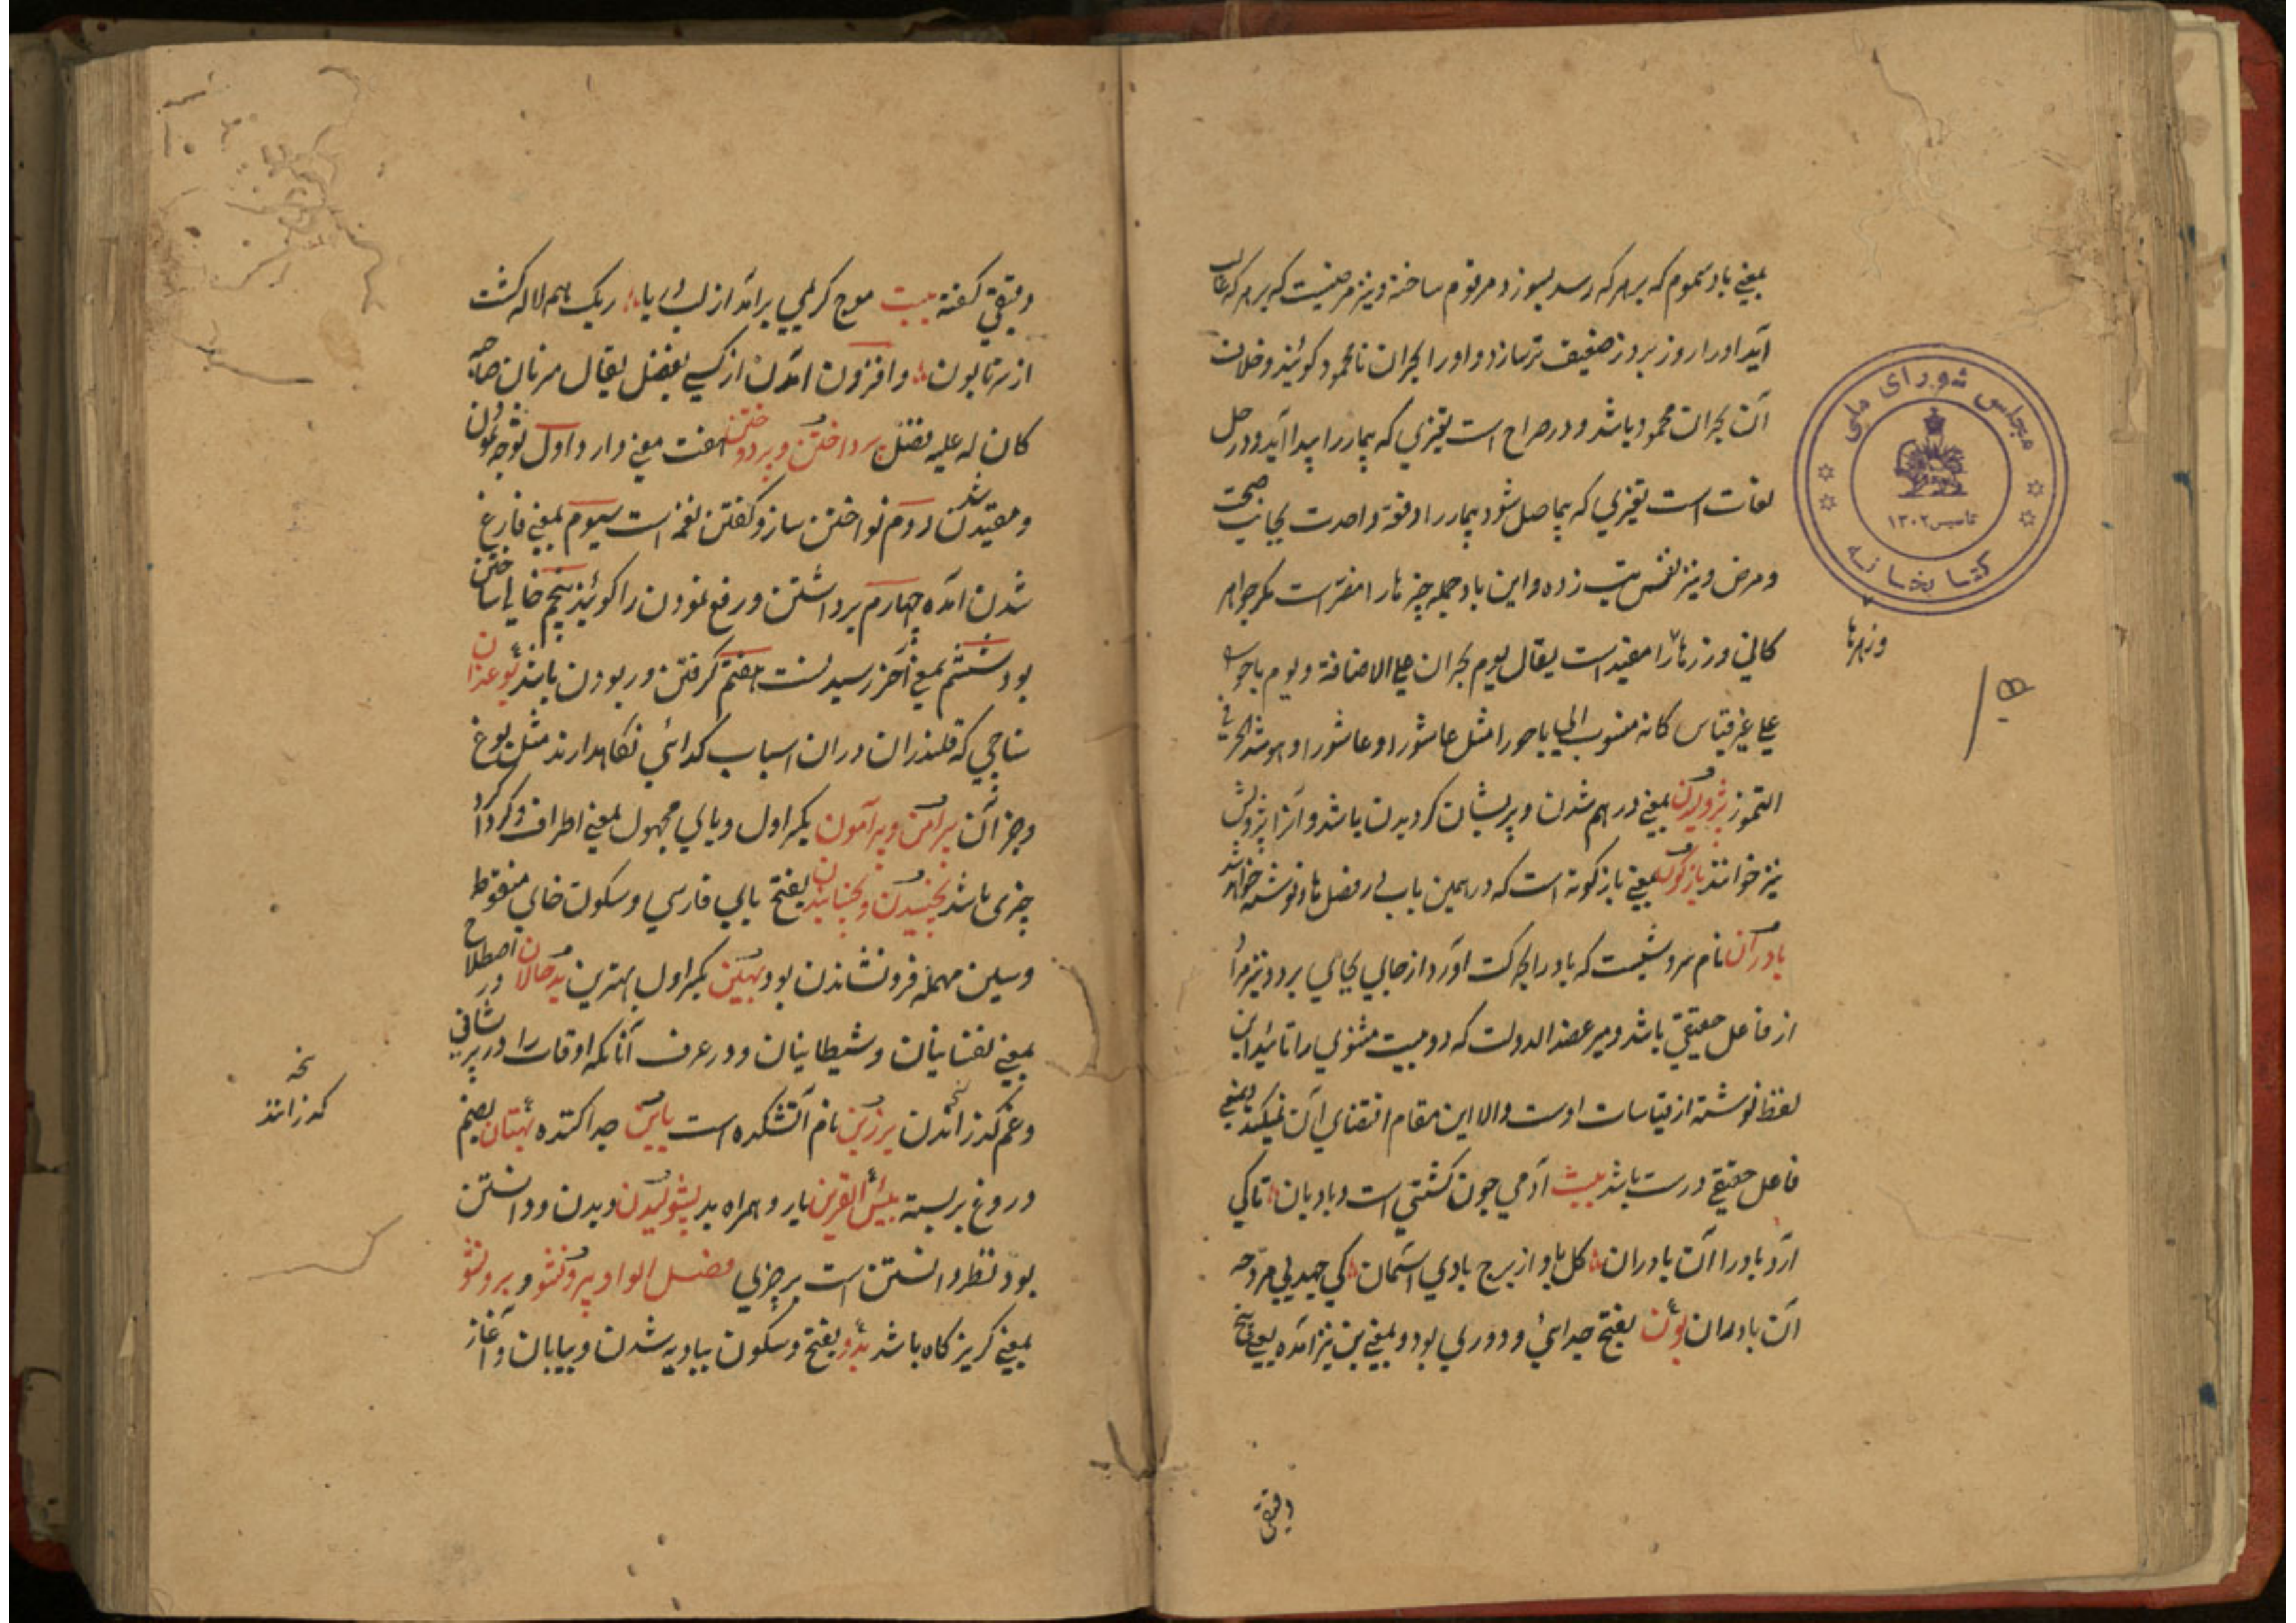 بمعنی باد سموم که بر هر که رسد بسوزد و مرقوم ساخته و نیز مرضیست که بر هر که غالب
آید او را روز بروز ضعیف تر سازد و او را بحران نامحمود کویند و خلاف
آن بحران محمود باشد و در صراح است تغیری که بیمار را پیدا آید و در حل
لغات است تغیری که حاصل شود بیمار را دفعة واحدة بجانب صحت
و مرض و نیز نفس تب زده و این باد جمله چیزها را مضر است مکر جواهر
کانی و زرها را مفید است یقال یوم بحران علی الاضافة و یوم باحوری
علی غیر قیاس کانه منسوب الی باحورا مثل عاشورا و عاشورا و هو شد الحر فی
التموز پژولیدن بمعنی در هم شدن و پریشان کردیدن باشد و آنرا پژولش
نیز خوانند بازکون بمعنی بازکونه است که در همین باب در فصل ها نوشته خواهد شد
بادران نام سروشیست که باد را بحرکت آورد از جایی بجایی برد و نیز مراد
از فاعل حقیقی باشد و میر عضد الدولت که دو بیت مثنوی را تائید این
لفظ نوشته از قیاسات اوست والا این مقام اقتضای آن نمیکند بمعنی
فاعل حقیقی درست باشد بیت آدمی چون کشتی است و بادبان تا کی
آرد باد را آن بادران کل باد از برج بادی آسمان کی جهد بی مروحه
آن بادران بون بفتح جدائی و دوری بود و بمعنی بن نیز آمده یعنی بیخ
دقیقی
وزهرها
مجلس شورای ملی
تاسیس ۱۳۰۲
کتابخانه
دقیقی کفته بیت موج کریمی برآمد از لب دریا ریک همه لاله کشت
از سر تا بون و افزون آمدن از کسی بفضل یقال
کان له علیه فضل پرداختن و پردختن هفت معنی دارد اول توجه نمودن
و مقید شدن دوم نواختن ساز و کفتن نغمه است سیوم بمعنی فارغ
شدن آمده چهارم برداشتن و رفع نمودن را کویند پنجم خالی ساختن
بود ششم بمعنی آخر رسیدنست هفتم کرفتن و ربودن باشد
که قلندران در آن اسباب کدائی نکاهدارند مثل بوغ
و جز آن پیرامن و پیرامون بکسر اول و یای مجهول بمعنی اطراف و کرداکرد
چیزی باشد پخسیدن و پخسانیدن بفتح بای فارسی و سکون خای منقوط
و سین مهمله فرونشاندن بود بهین بکسر اول بهترین بدحالان در اصطلاح
بمعنی نفسانیان و شیطانیان و در عرف آنانکه اوقات را در پریشانی
و غم کذرانیدن برزین نام آتشکده است باین جدا کننده بهتان بضم
دروغ بر بسته بئس القرین یار و همراه بد پشولیدن دیدن و دانستن
بود نظر دانستن است بر چیزی فصل الواو پروننو و برونشو
بمعنی کریزکاه باشد بدو بفتح و سکون ببادیه شدن و بیابان و آغاز
نخه
کذرانند